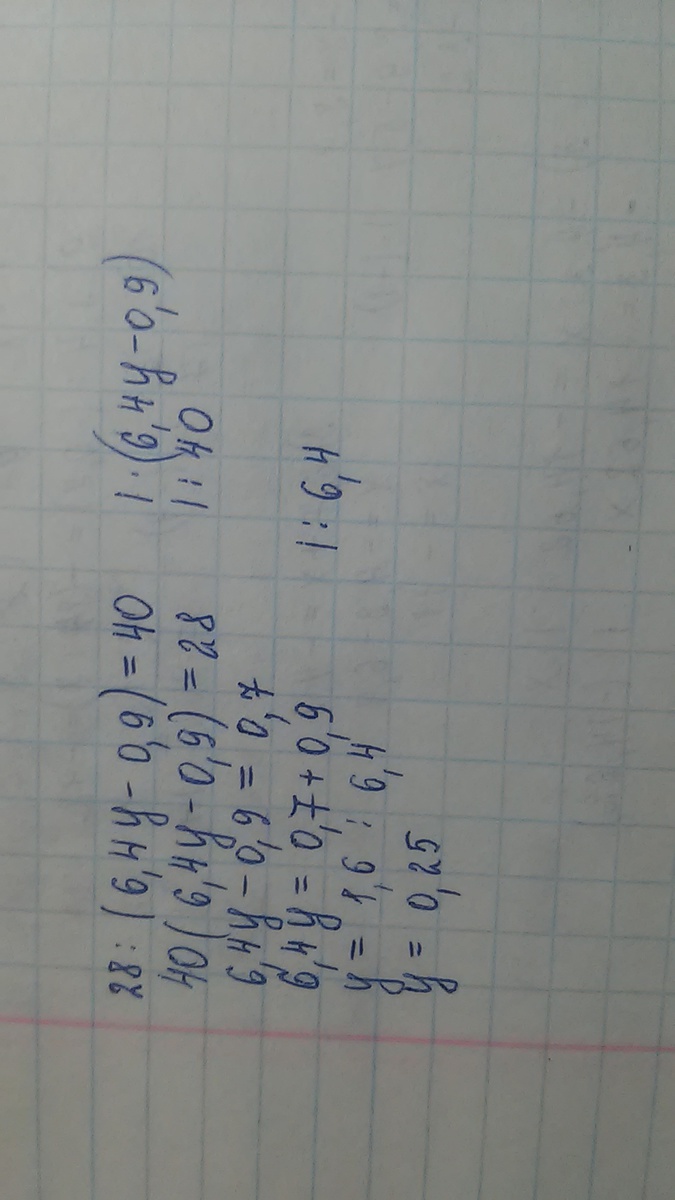 28 : (6,4y - 0,9) = 40 | · (6,4y - 0,9)
40(6,4y - 0,9) = 28 | : 40
6,4y - 0,9 = 0,7
6,4y = 0,7 + 0,9 | : 6,4
y = 1,6 : 6,4
y = 0,25